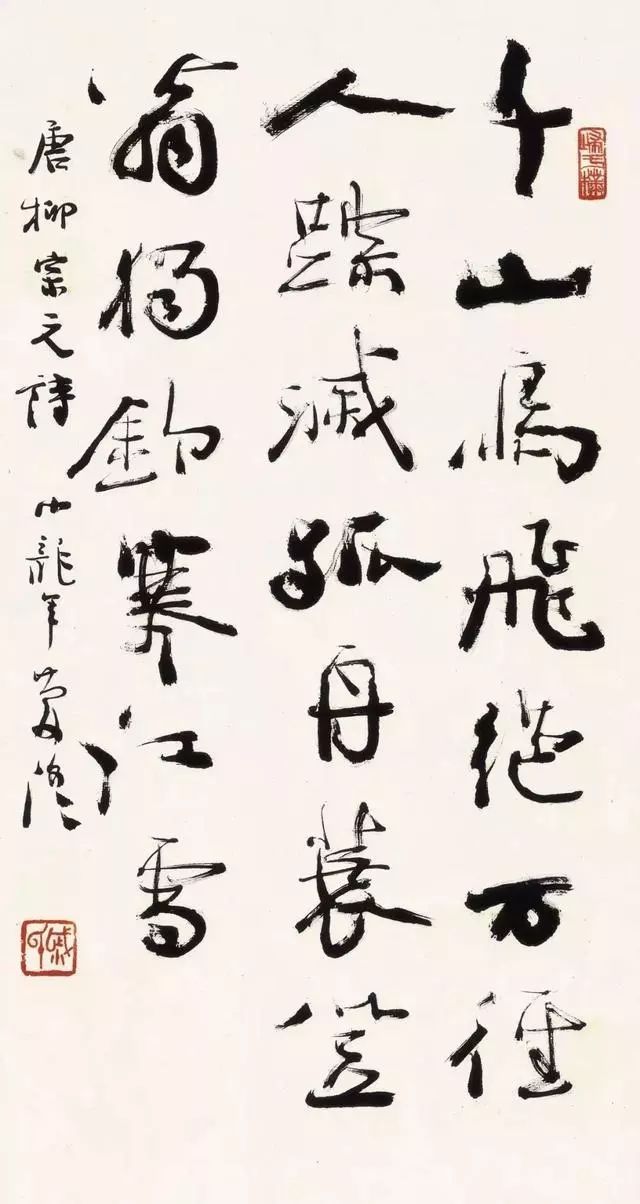 千山鳥飛絶万径
人踪滅孤舟蓑笠
翁獨釣寒江雪
唐柳宗元詩 小龍年